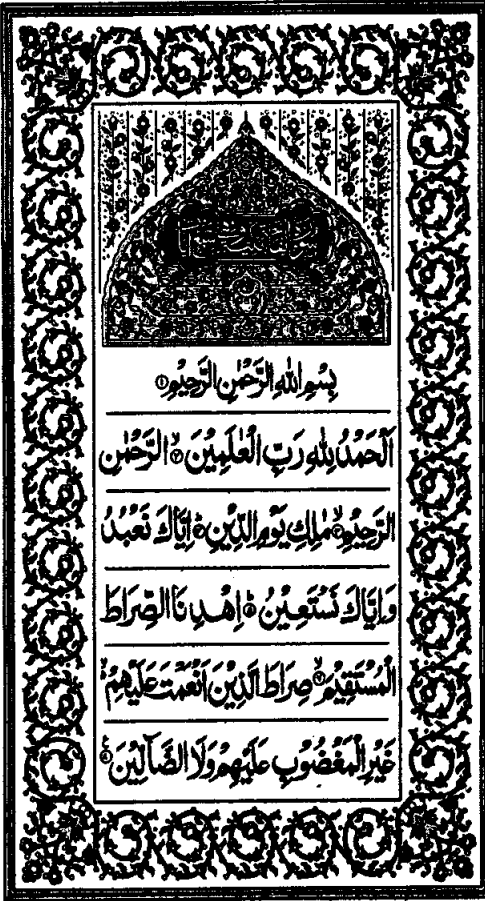 بِسْمِ اللّٰهِ الرَّحْمٰنِ الرَّحِيْمِ ۝۱
اَلْحَمْدُ لِلّٰهِ رَبِّ الْعٰلَمِيْنَ ۝۲ۙ الرَّحْمٰنِ
الرَّحِيْمِ ۝۳ۙ مٰلِكِ يَوْمِ الدِّيْنِ ۝۴ؕ اِيَّاكَ نَعْبُدُ
وَاِيَّاكَ نَسْتَعِيْنُ ۝۵ؕ اِهْدِنَا الصِّرَاطَ
الْمُسْتَقِيْمَ ۝۶ۙ صِرَاطَ الَّذِيْنَ اَنْعَمْتَ عَلَيْهِمْ ۙ
غَيْرِ الْمَغْضُوْبِ عَلَيْهِمْ وَلَا الضَّآلِّيْنَ ۝۷